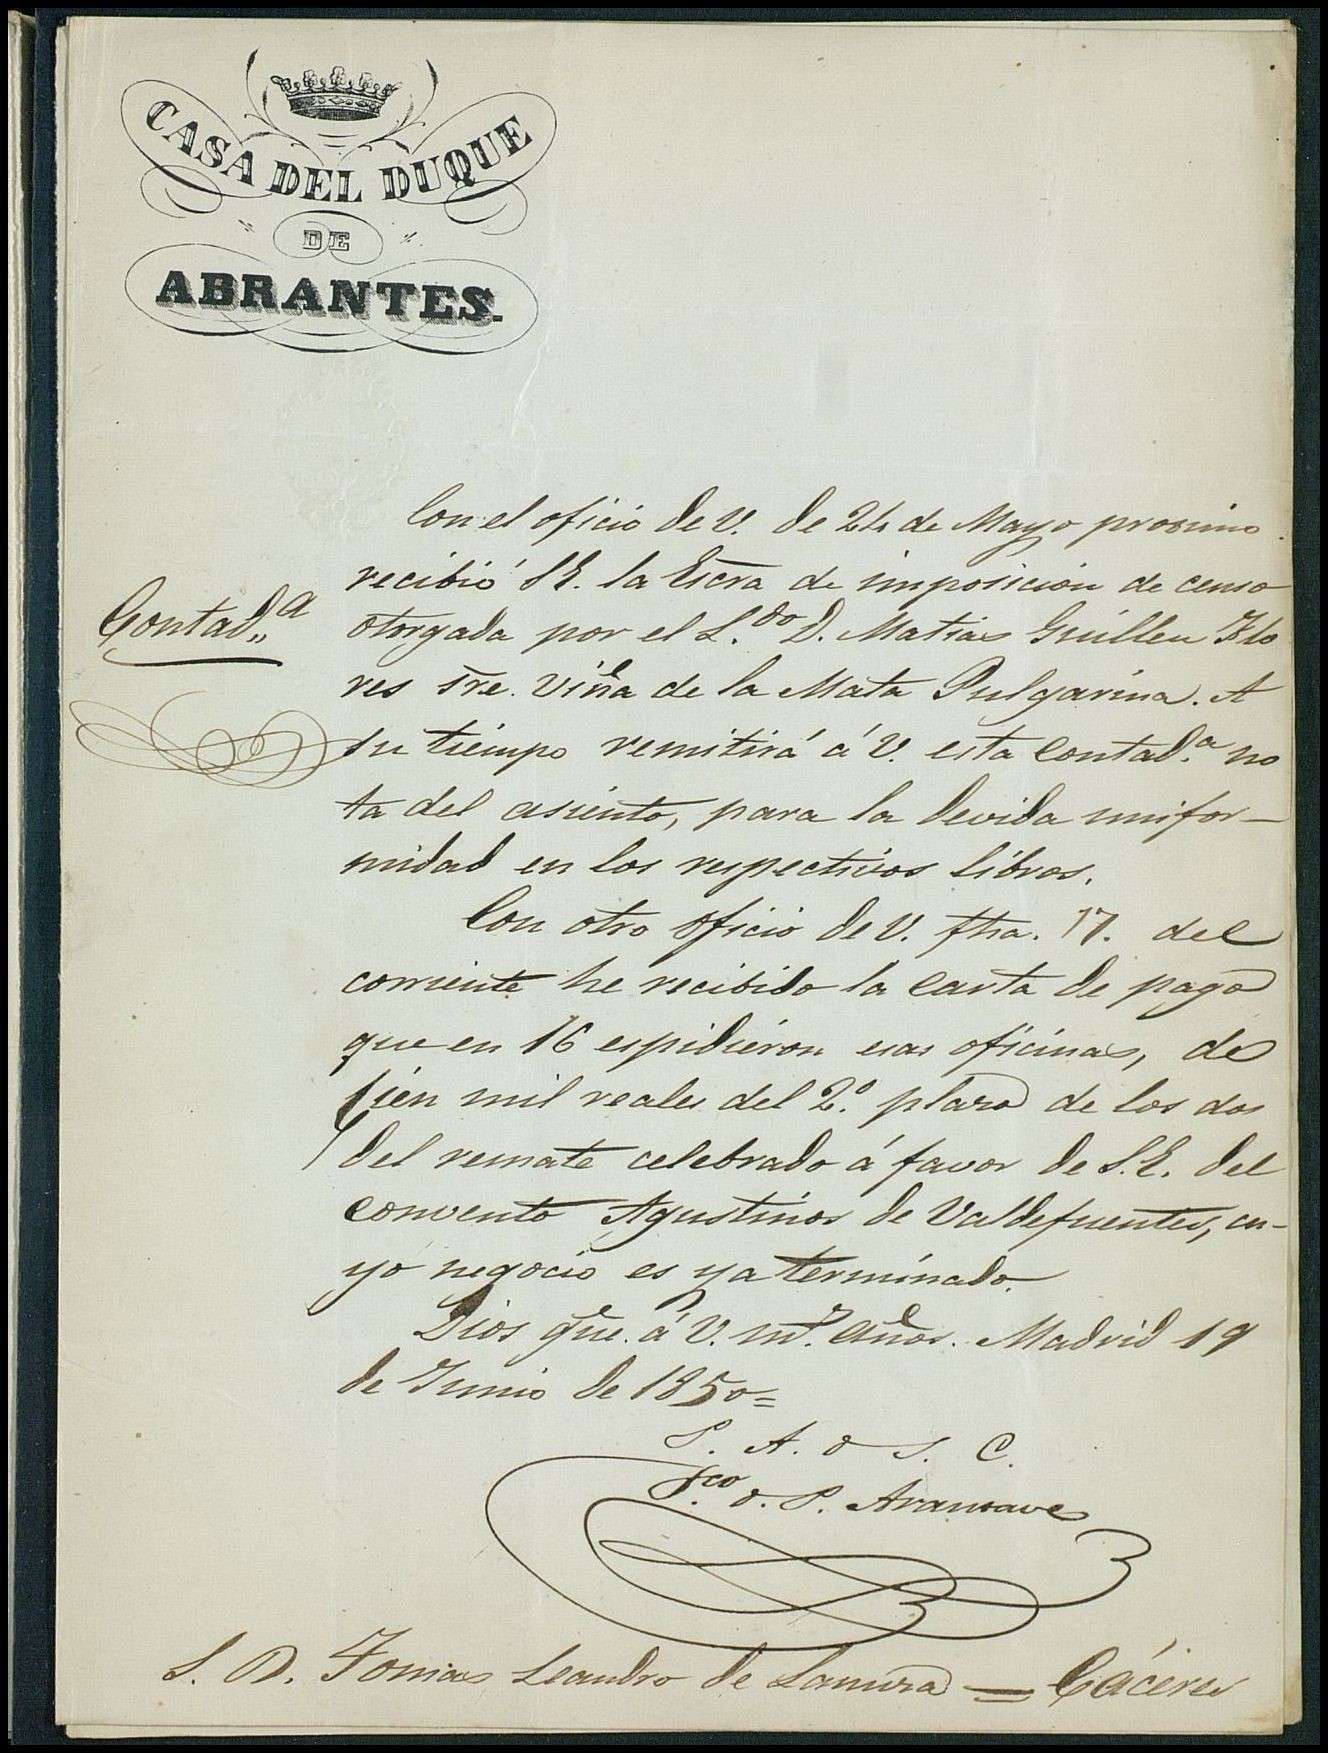 CASA DEL DUQUE
DE
ABRANTES.
Contad.ª
Con el oficio de V. de 24 de Mayo procsimo
recibió S.E. la Escra de imposicion de censo
otorgada por el L.do D. Matias Guillen Flo
res sre. viña de la Mata Pulgarina. A
su tiempo remitirá á V. esta Contad.ª no
ta del asiento, para la devida unifor-
midad en los respectivos libros.
Con otro oficio de V. fha. 17. del
corriente he recibido la carta de pago
que en 16 espidieron esas oficinas, de
Cien mil reales del 2.º plazo de los dos
del remate celebrado á favor de S.E. del
convento Agustinos de Valdefuentes, cu-
yo negocio es ya terminado.
Dios gue. á V. ms. años. Madrid 19
de Junio de 1850=
P. A. d S. C.
F.co d. P. Aransave
S. D. Tomas Leandro de Lamura = Cáceres